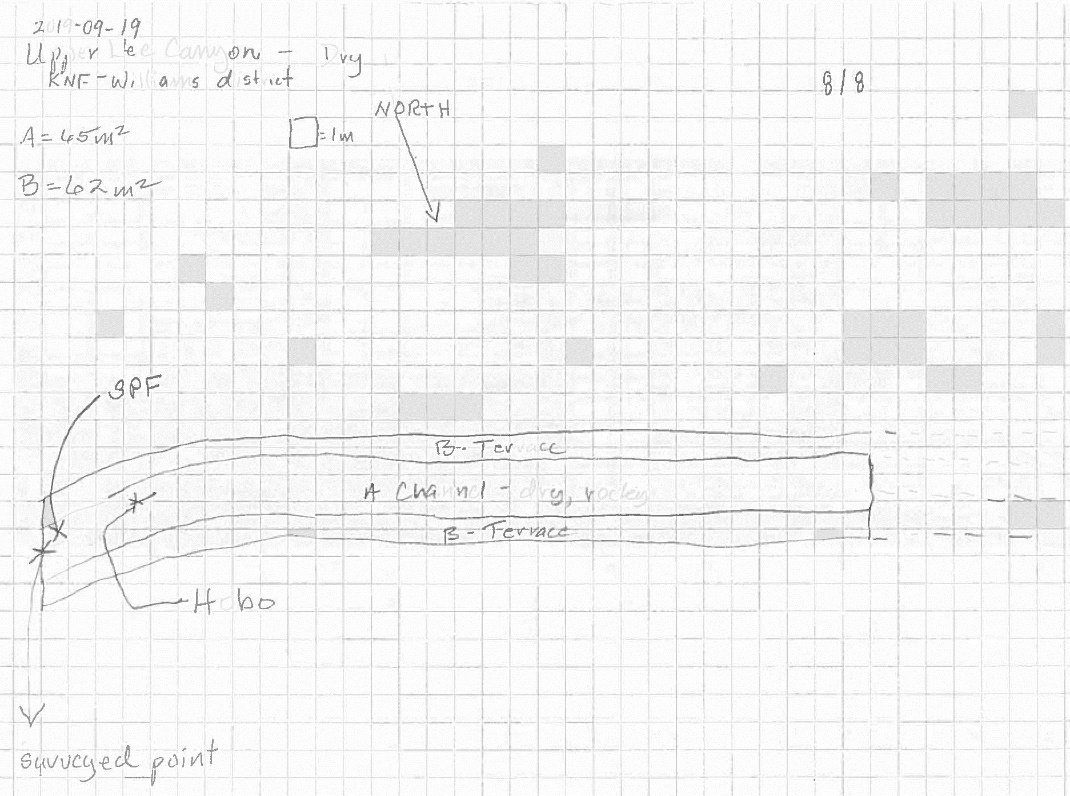 2019-09-19
Upper Lee Canyon - Dry
KNF-Williams district
8/8
NORTH
A = 65m²
□ = 1m
B = 62m²
SPF
B - Terrace
A Channel - dry, rocky
B - Terrace
Hobo
surveyed point